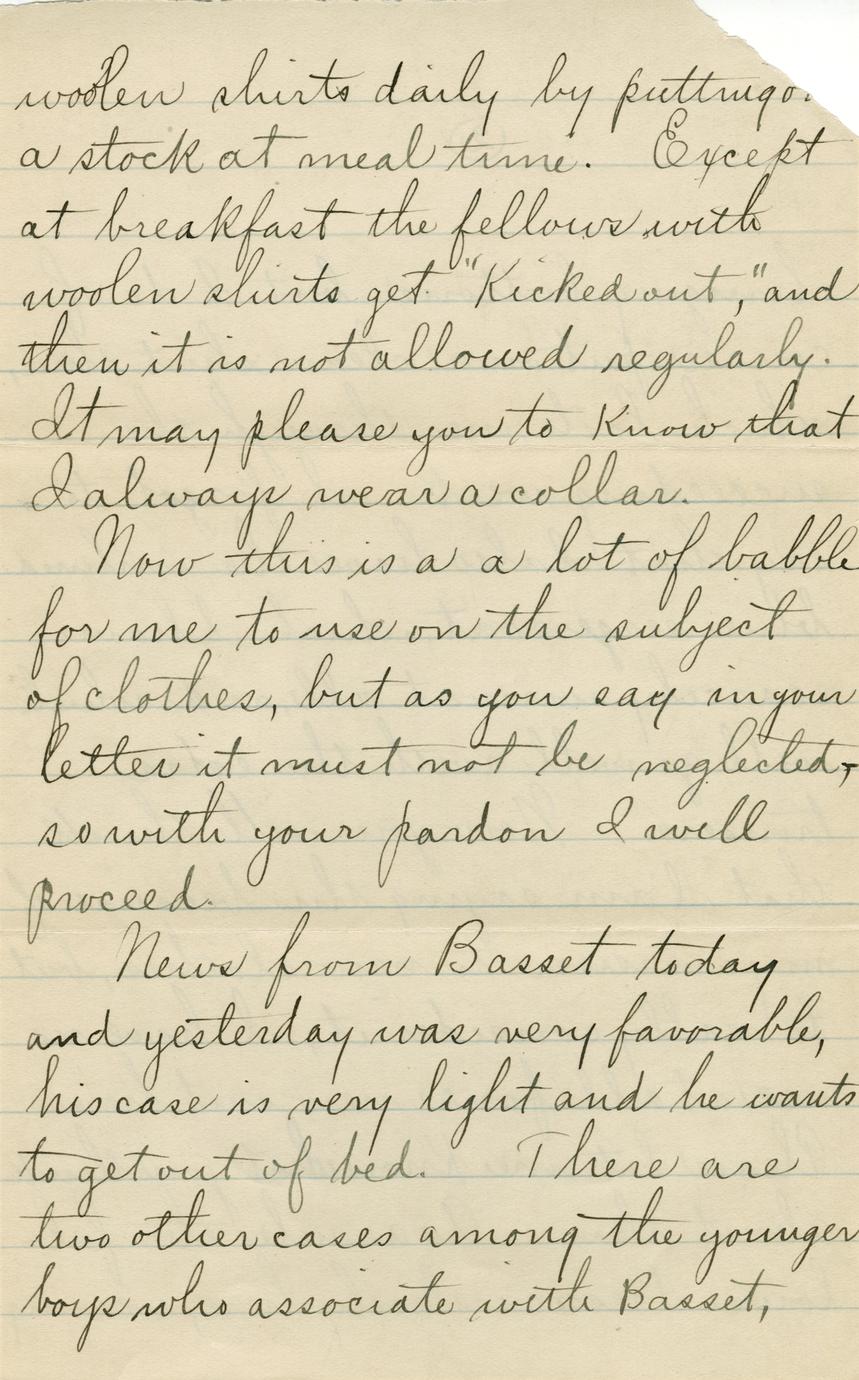 woolen shirts daily by putting on
a stock at meal time. Except
at breakfast the fellows with
woolen shirts get "Kicked out," and
then it is not allowed regularly.
It may please you to know that
I always wear a collar.
Now this is a a lot of babble
for me to use on the subject
of clothes, but as you say in your
letter it must not be neglected,
so with your pardon I will
proceed.
News from Basset today
and yesterday was very favorable,
his case is very light and he wants
to get out of bed. There are
two other cases among the younger
boys who associate with Basset,